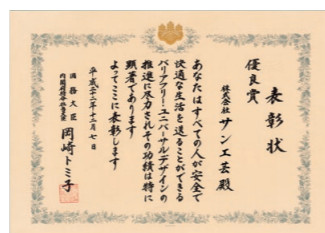 表彰状
優良賞
株式会社 サン工芸 殿
あなたはすべての人が安全で
快適な生活を送ることができる
バリアフリー・ユニバーサルデザインの
推進に尽力されその功績は特に
顕著であります
よってここに表彰します
平成二十二年十二月七日
内閣府特命担当大臣 岡崎トミ子